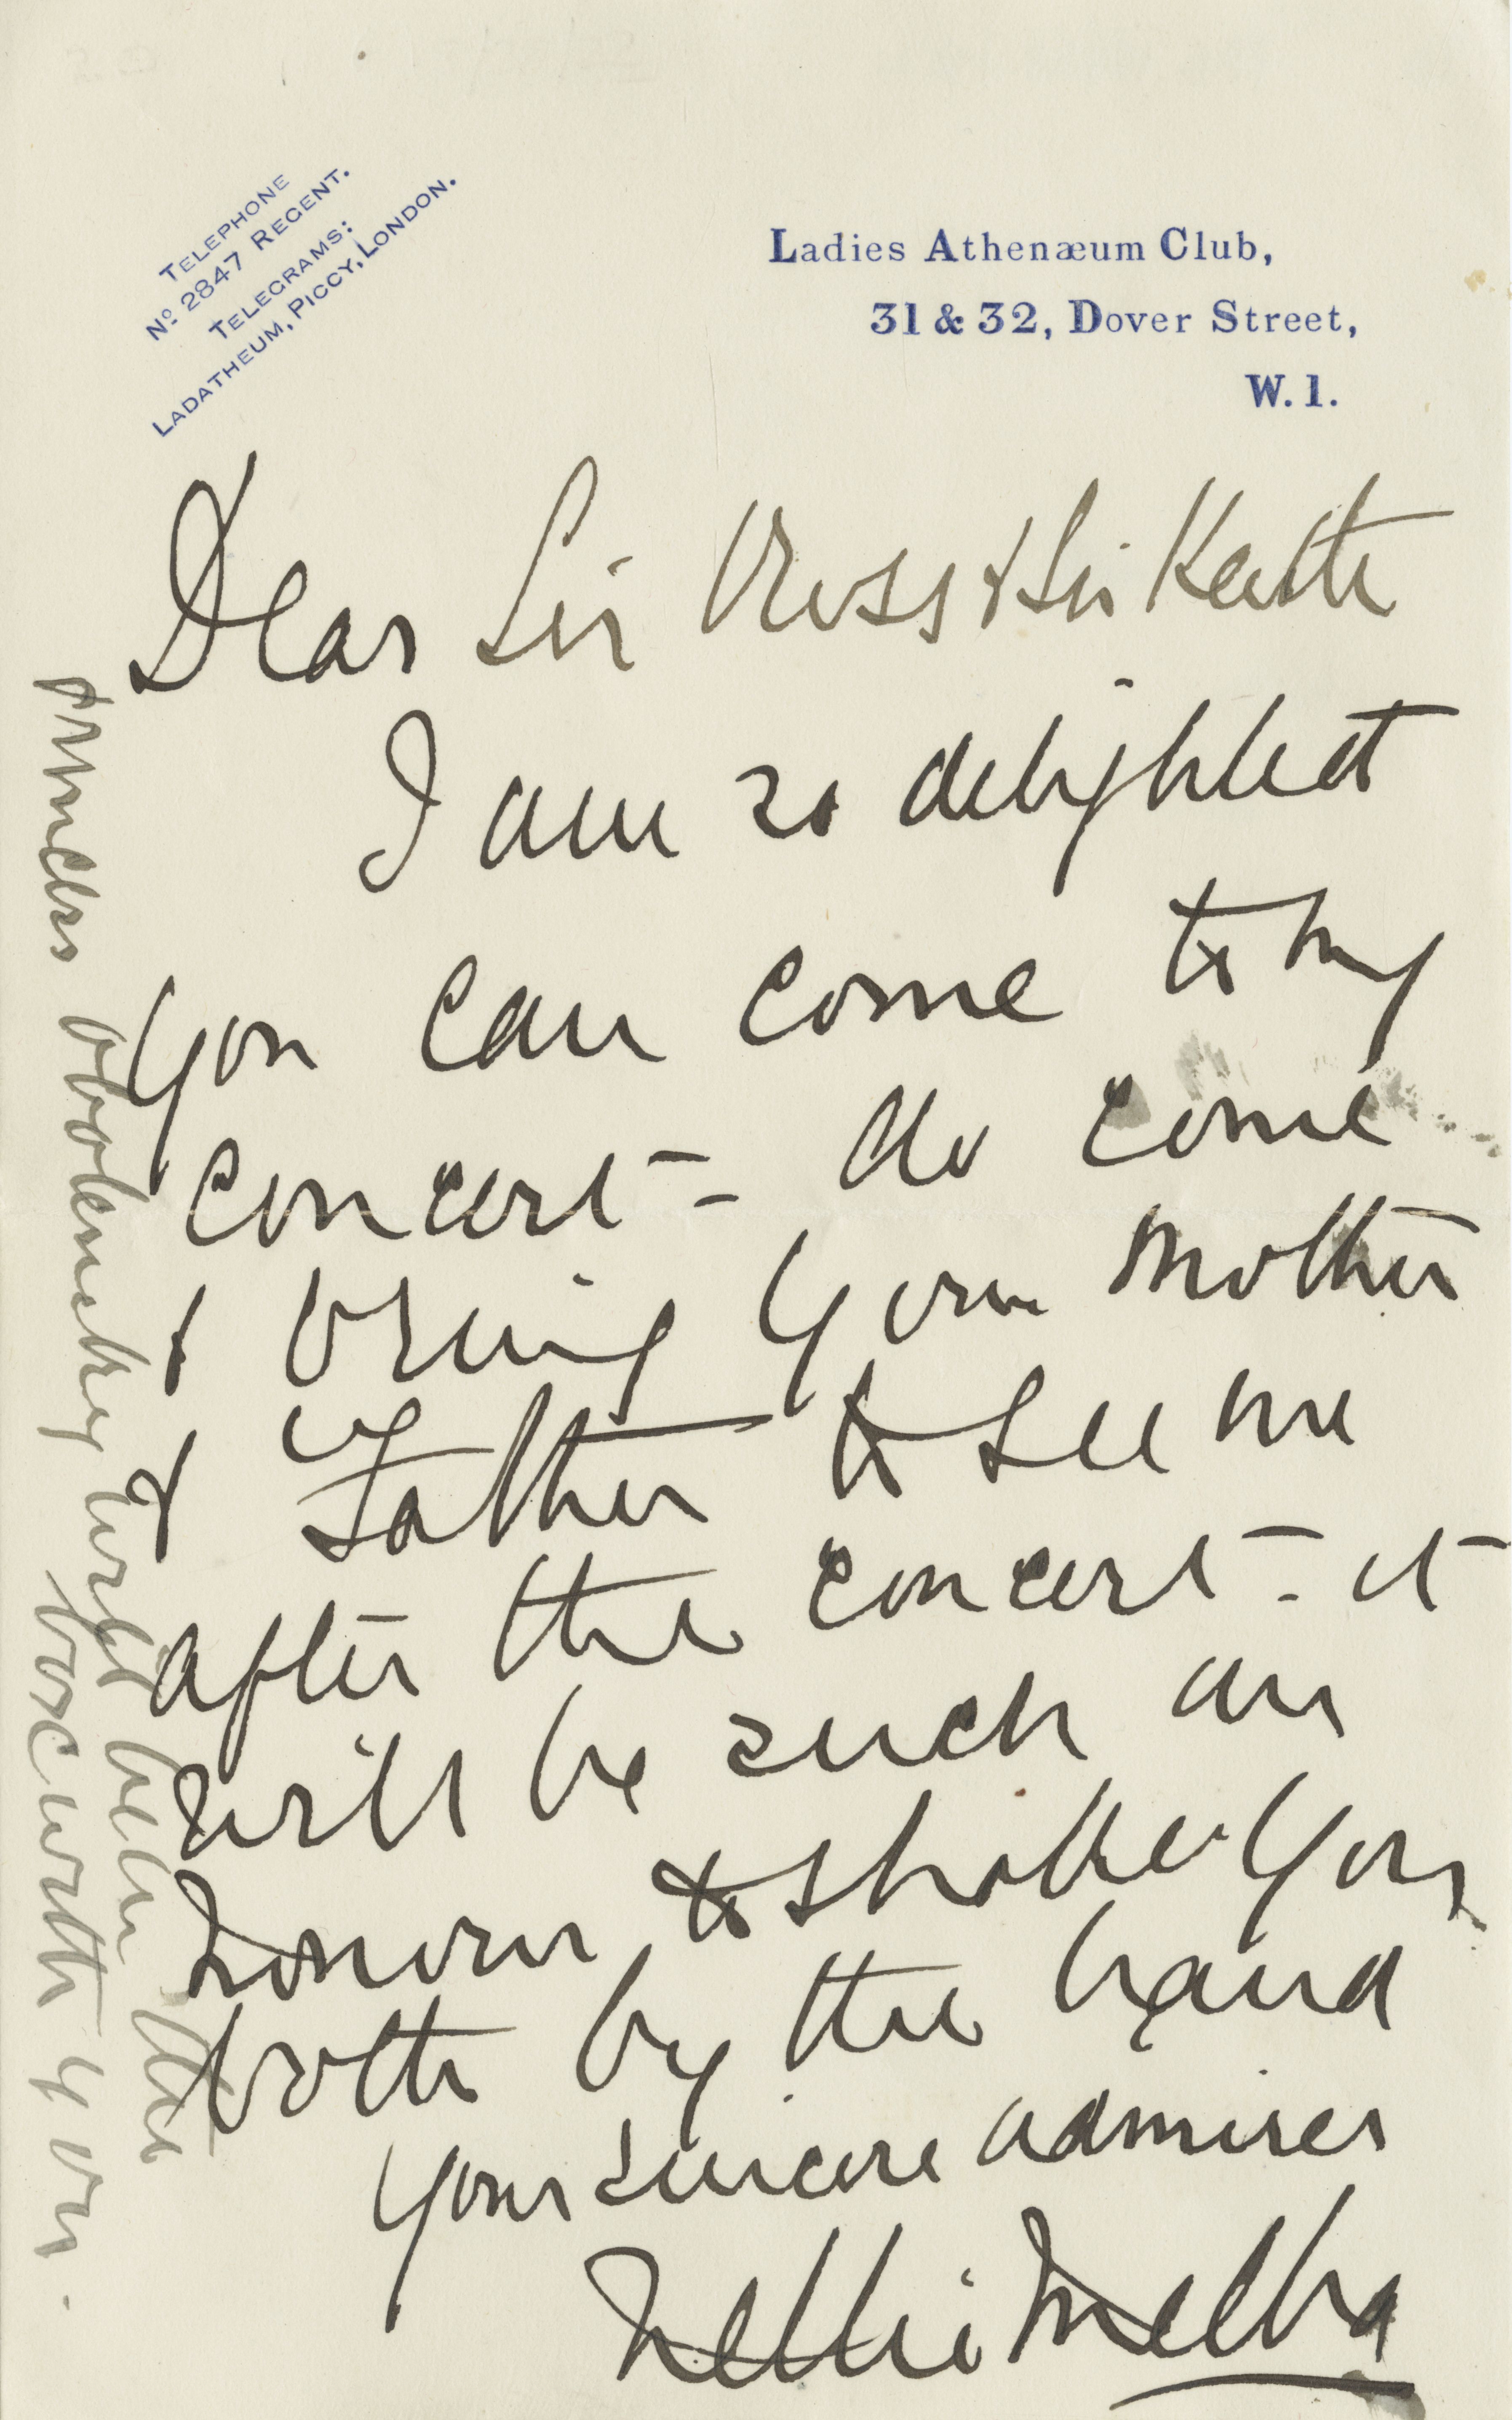 TELEPHONE
Nº 2847 REGENT.
TELEGRAMS:
LADATHEUM, PICCY, LONDON.
Ladies Athenæum Club,
31 & 32, Dover Street,
W. 1.
Dear Sir Ross & Sir Keith
I am so delighted
you can come to my
concert – do come
& bring your Mother
& Father to see me
after the concert – it
will be such an
honour to shake you
both by the hand
Your sincere admirer
Nellie Melba
Princess will be in the
box with you.